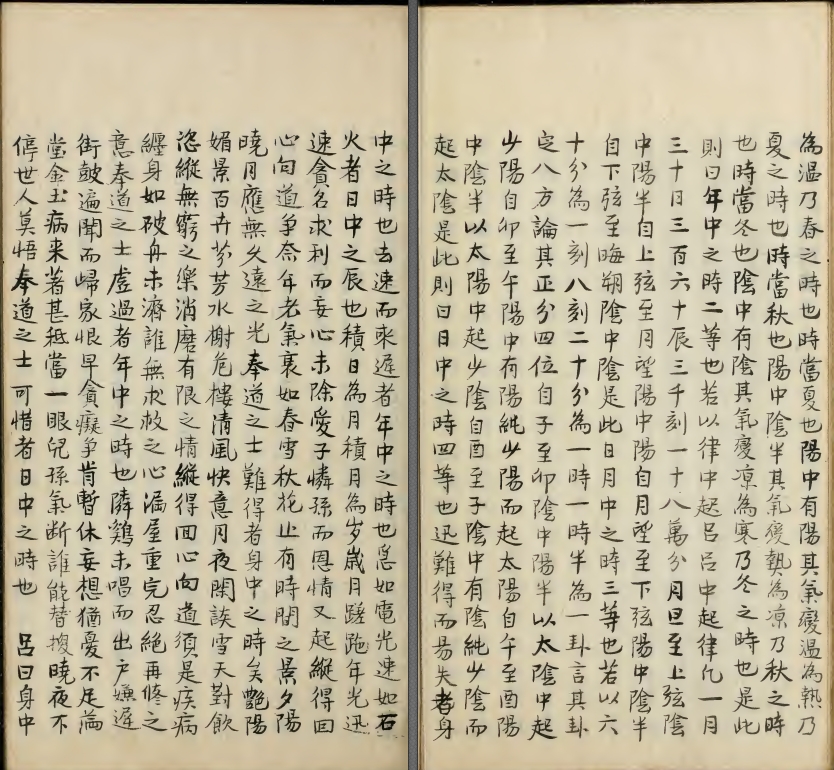 為温乃春之時也時當夏也陽中有陽其氣變温為熱乃
夏之時也時當秋也陽中陰半其氣變熱為凉乃秋之時
也時當冬也陰中有陰其氣變凉為寒乃冬之時也是此
則曰年中之時二等也若以律中起吕吕中起律凢一月
三十日三百六十辰三千刻一十八萬分月旦至上弦陰
中陽半自上弦至月望陽中陽自月望至下弦陽中陰半
自下弦至晦朔陰中陰是此日月中之時三等也若以六
十分為一刻八刻二十分為一時一時半為一卦言其卦
定八方論其正分四位自子至卯陰中陽半以太陰中起
少陽自卯至午陽中有陽純少陽而起太陽自午至酉陽
中陰半以太陽中起少陰自酉至子陰中有陰純少陰而
起太陰是此則曰日中之時四等也迅難得而易失者身
中之時也去速而來遲者年中之時也急如電光速如石
火者日中之辰也積日為月積月為岁歳月蹉跎年光迅
速貪名求利而妄心未除愛子憐孫而恩情又起縱得回
心向道爭奈年老氣衰如春雪秋花止有時間之景夕陽
曉月應無久遠之光奉道之士難得者身中之時矣艶陽
媚景百卉芬芳水榭危樓清風快意月夜閑談雪天對飲
恣縱無窮之樂消磨有限之情縱得回心向道須是疾病
纏身如破舟未濟誰無求救之心漏屋重完忍絕再修之
意奉道之士虛過者年中之時也隣鷄未唱而出户嫌遲
街皷遍聞而歸家恨早貪癡爭肯暫休妄想猶憂不足滿
堂金玉病来著甚抵當一眼兒孫氣断誰能替換曉夜不
停世人莫悟奉道之士可惜者日中之時也　吕曰身中